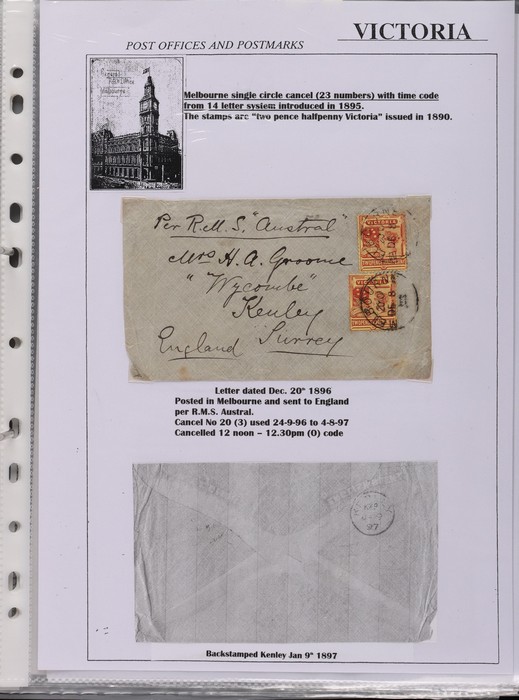 VICTORIA
POST OFFICES AND POSTMARKS
Melbourne single circle cancel (23 numbers) with time code
from 14 letter system introduced in 1895.
The stamps are "two pence halfpenny Victoria" issued in 1890.
Per R.M.S. "Austral"
Mrs H. A. Groome
"Wycombe"
Kenley
Surrey
England
VICTORIA
Letter dated Dec. 20th 1896
Posted in Melbourne and sent to England
per R.M.S. Austral.
Cancel No 20 (3) used 24-9-96 to 4-8-97
Cancelled 12 noon – 12.30pm (O) code
97
Backstamped Kenley Jan 9th 1897